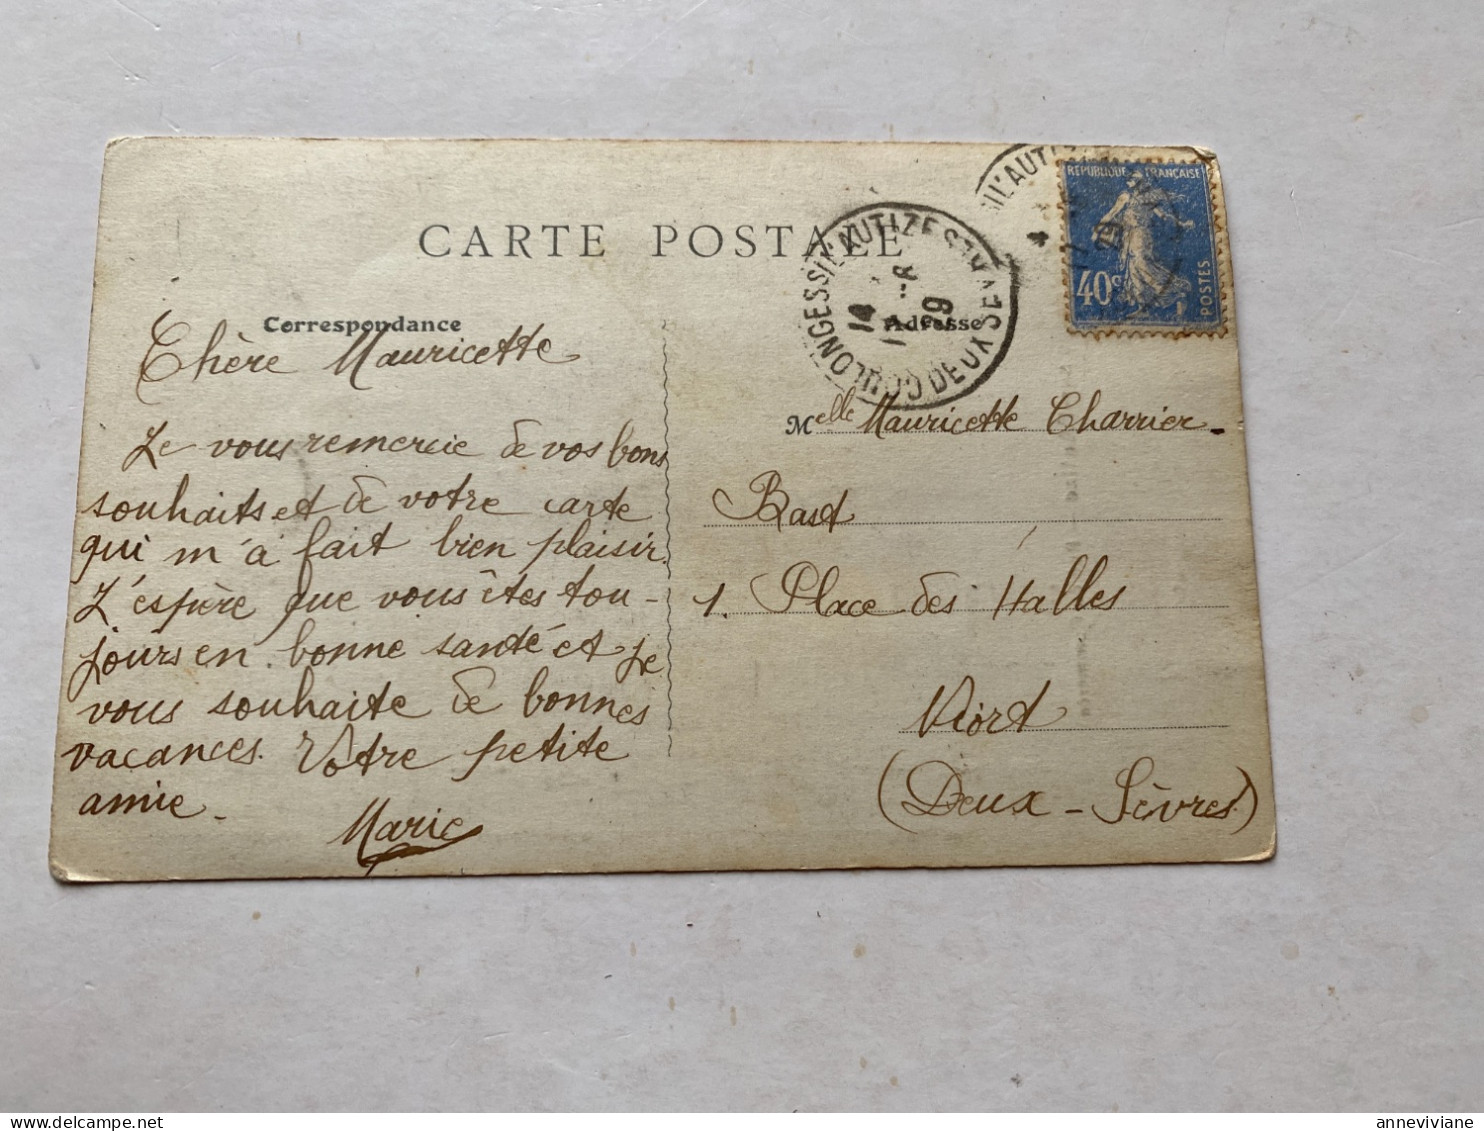 CARTE POSTALE
Correspondance
Chère Mauricette
Je vous remercie de vos bons
souhaits et de votre carte
qui m'a fait bien plaisir.
J'espère que vous êtes tou-
jours en bonne santé et je
vous souhaite de bonnes
vacances. Votre petite
amie.
Marie
Adresse
Melle Mauricette Charrier.
Bast
1. Place des Halles
Niort
(Deux-Sèvres)
COULONGES S/L'AUTIZE DEUX SEVRES
14
-8
29
S/L'AUTIZ
4
29
RÉPUBLIQUE FRANÇAISE
40c
POSTES
anneviviane